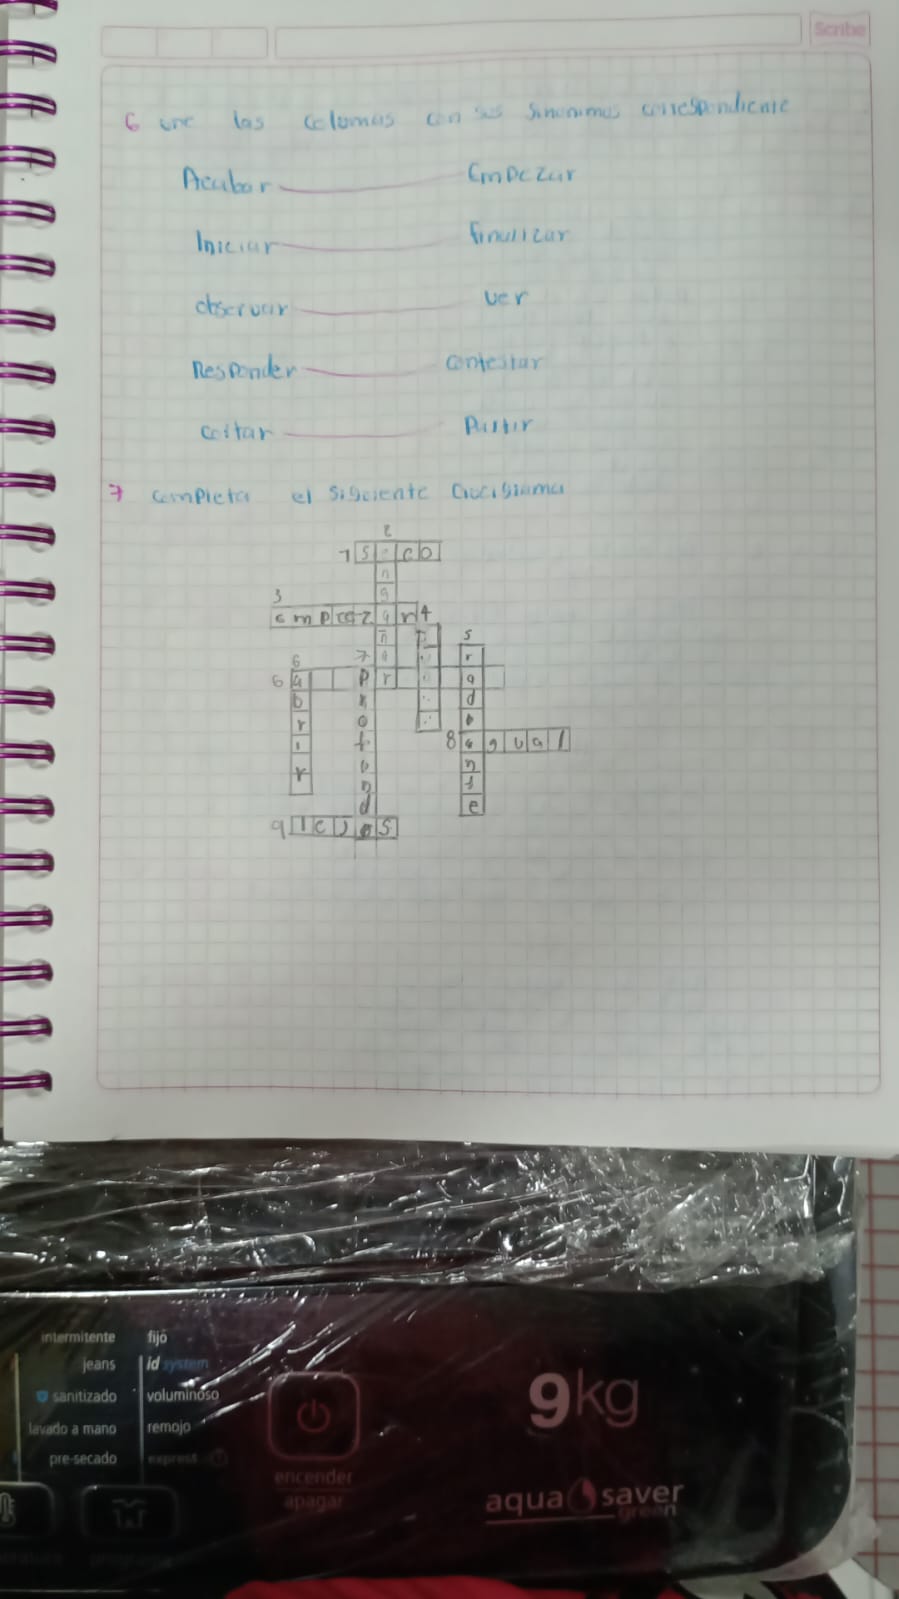 Scribe
6 une las columas con sus sinonimos correspondiente
Acabar Empezar
Iniciar finalizar
observar ver
Responder contestar
cortar Partir
7 completa el siguiente Crucigrama
2
1 S e c o
n
g
3
e m p e z a r 4
ñ
5
7 a r
6
6 a p r a
b r d
r o i
i f 8 i g u a l
r u n
n t
d e
9 l e j o s
intermitente fijo
jeans id system
sanitizado voluminoso
lavado a mano remojo
pre-secado express
encender
apagar
9kg
aqua saver
green